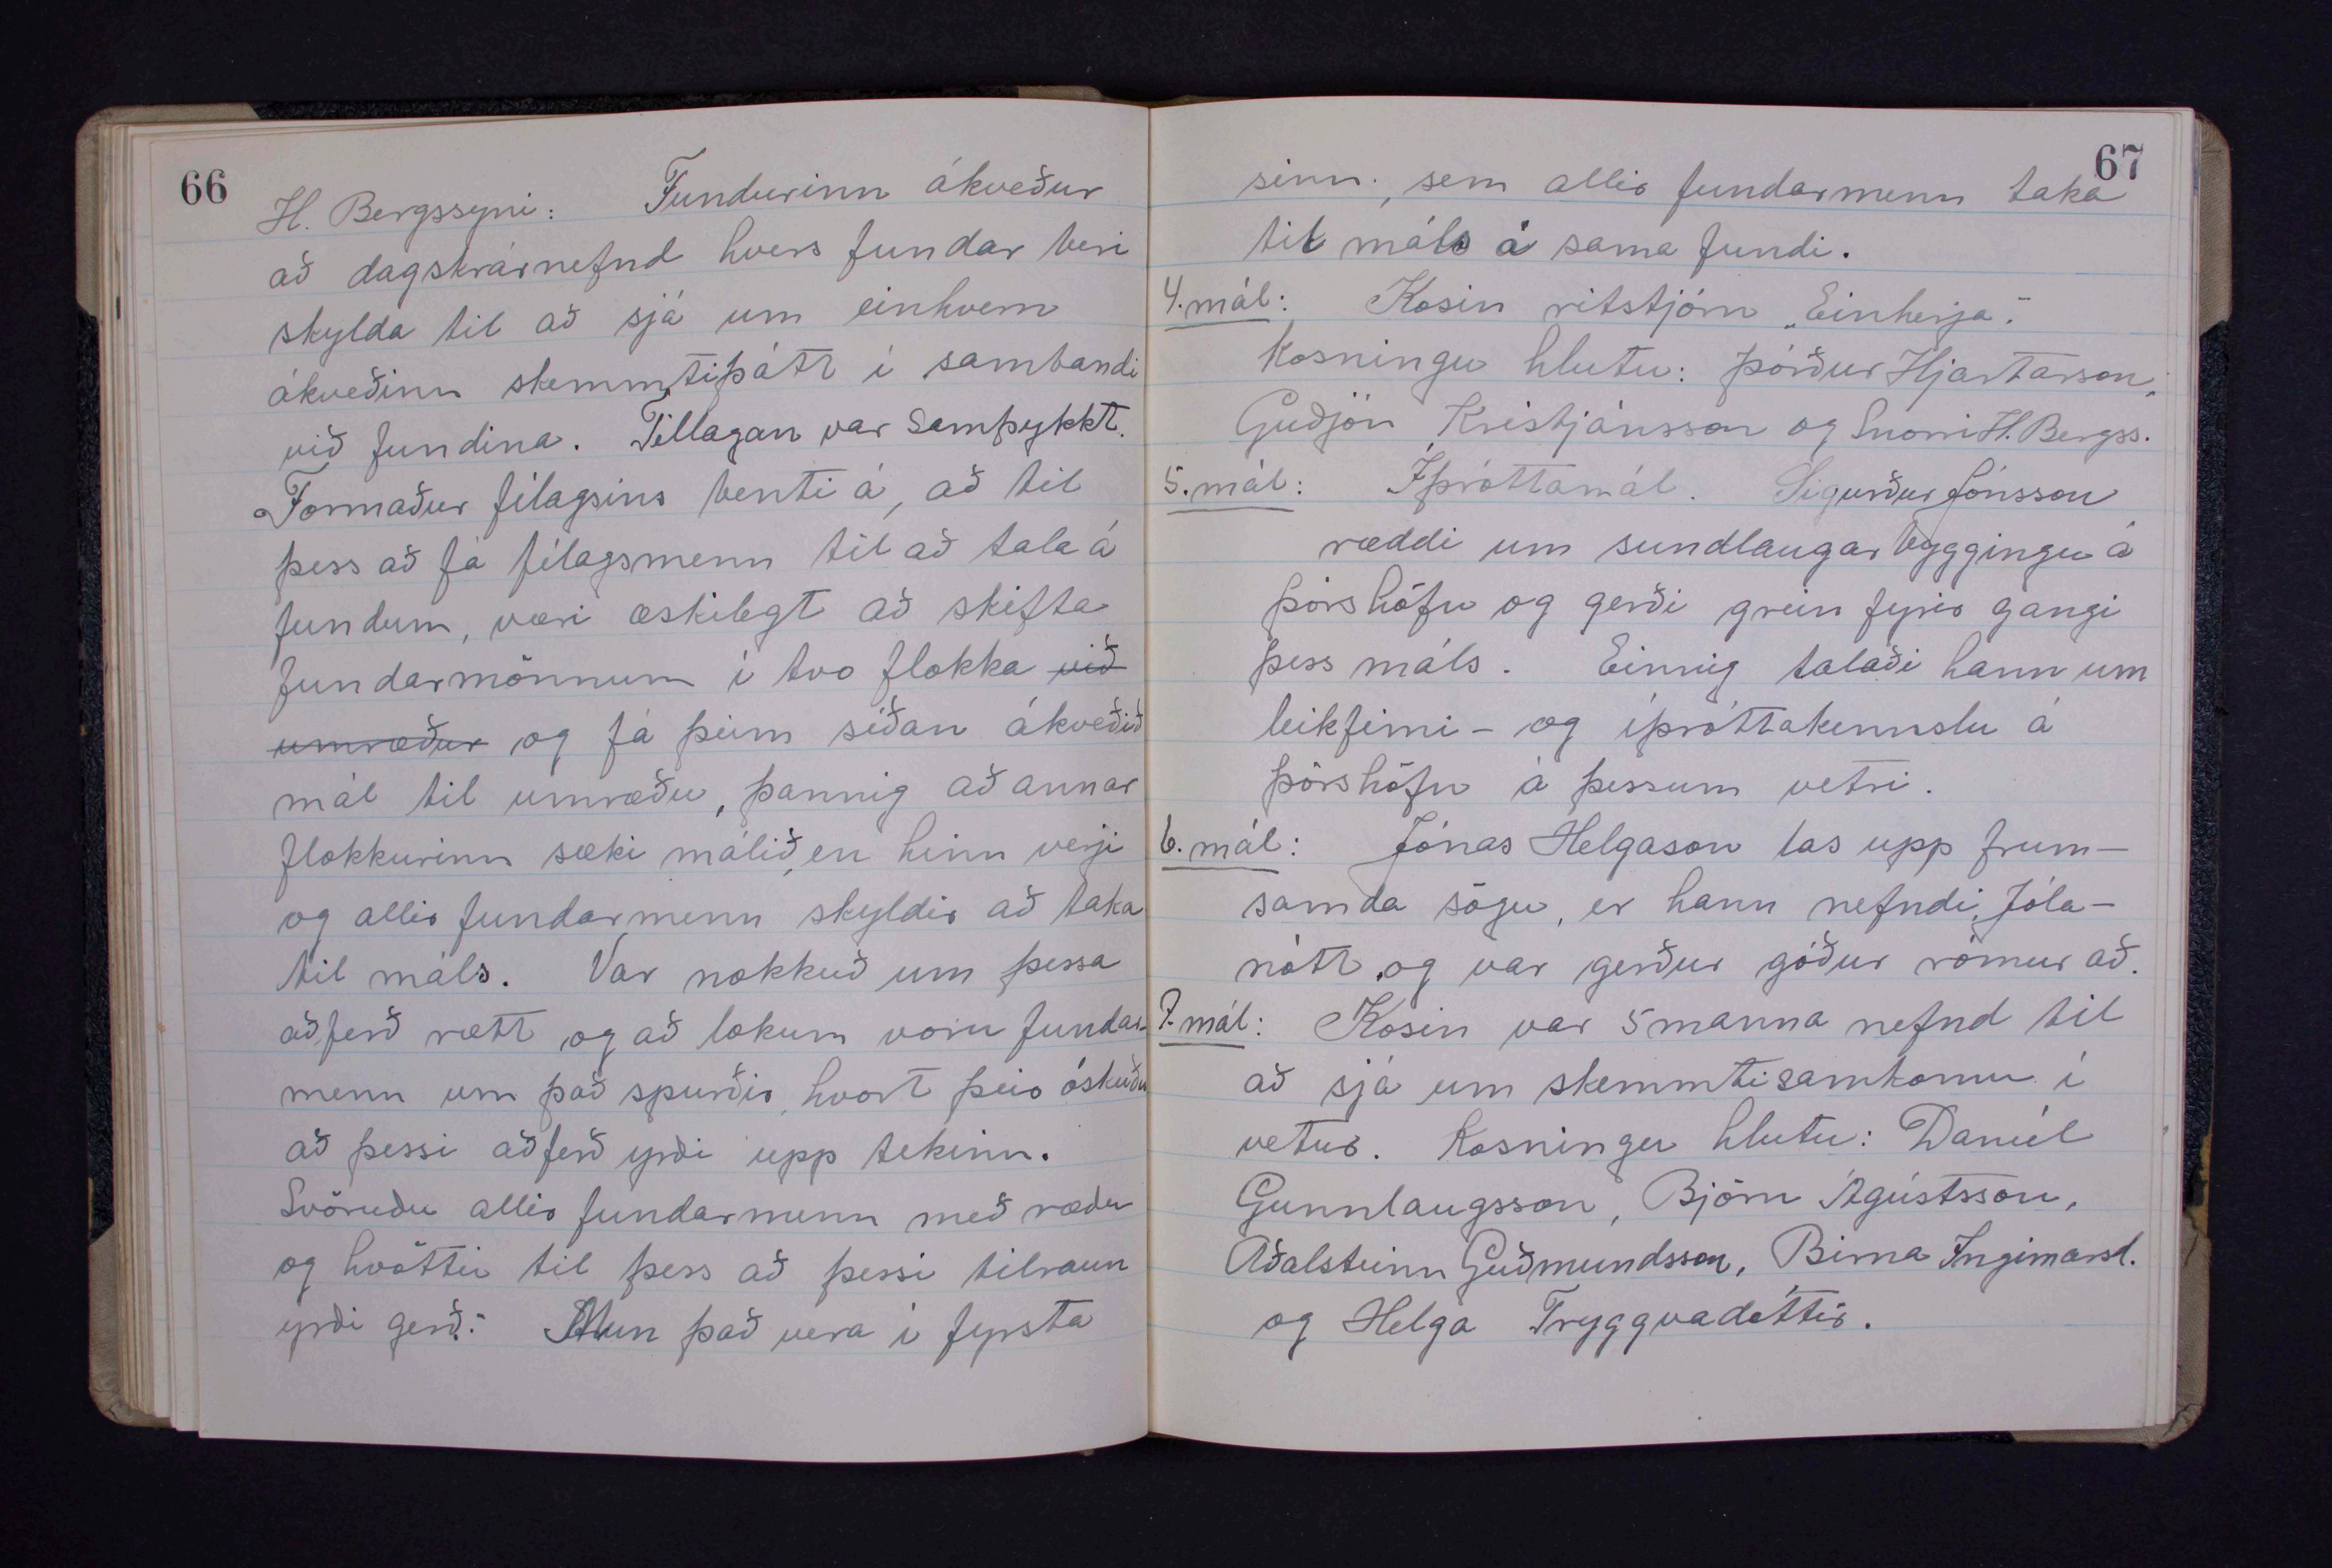 66
H. Bergssyni: Fundurinn ákveður
að dagskrárnefnd hvers fundar beri
skylda til að sjá um einhvern
ákveðinn skemmtiþátt í sambandi
við fundina. Tillagan var samþykkt.
Formaður félagsins benti á, að til
þess að fá félagsmenn til að tala á
fundum, væri æskilegt að skifta
fundarmönnum í tvo flokka við
umræður og fá þeim síðan ákveðið
mál til umræðu, þannig að annar
flokkurinn sæki málið, en hinn verji
og allir fundarmenn skyldir að taka
til máls. Var nokkuð um þessa
aðferð rætt og að lokum voru fundar-
menn um það spurðir, hvort þeir óskuðu
að þessi aðferð yrði upp tekinn.
Svöruðu allir fundarmenn með ræðu
og hvöttu til þess að þessi tilraun
yrði gerð. Mun það vera í fyrsta
67
sinn, sem allir fundarmenn taka
til máls á sama fundi.
4. mál: Kosin ritstjórn „Einherja“.
Kosningu hlutu: Þórður Hjartarson,
Guðjón Kristjánsson og Snorri H. Bergss.
5. mál: Íþróttamál. Sigurður Jónsson
ræddi um sundlaugarbyggingu á
Þórshöfn og gerði grein fyrir gangi
þess máls. Einnig talaði hann um
leikfimi- og íþróttakennslu á
Þórshöfn á þessum vetri.
6. mál: Jónas Helgason las upp frum-
samda sögu, er hann nefndi Jóla-
nótt og var gerður góður rómur að.
7. mál: Kosin var 5 manna nefnd til
að sjá um skemmtisamkomu í
vetur. Kosningu hlutu: Daníel
Gunnlaugsson, Björn Ágústsson,
Aðalsteinn Guðmundsson, Birna Ingimarsd.
og Helga Tryggvadóttir.